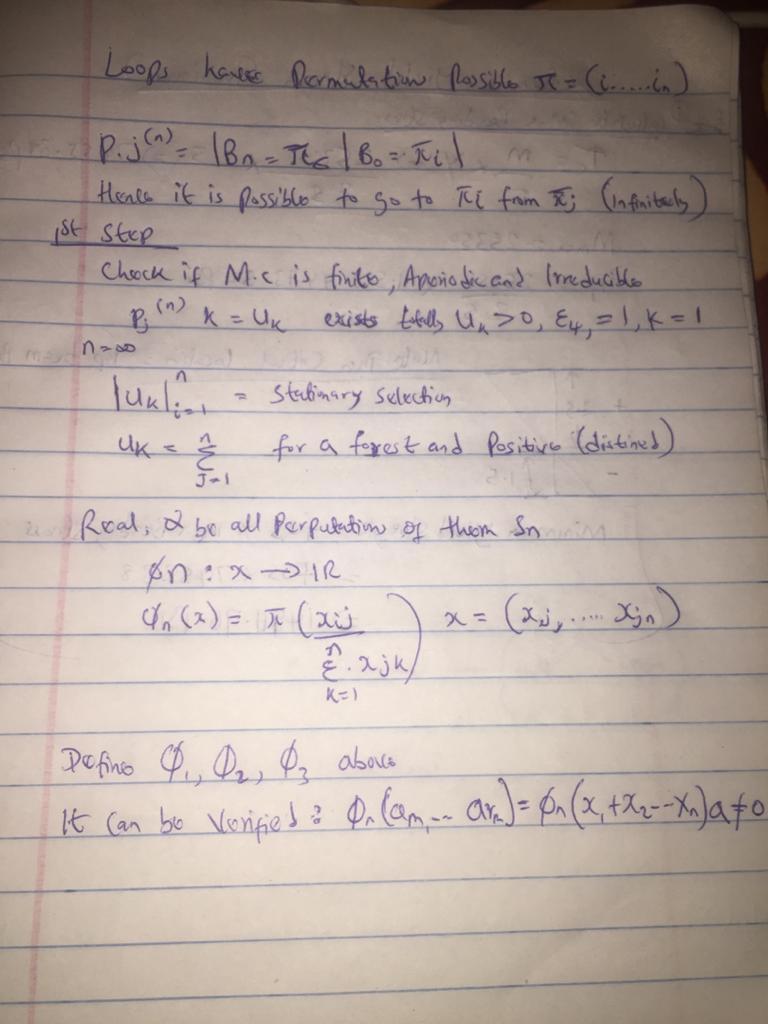 Loops have Permutation Possible π = (i......in)
P.j⁽ⁿ⁾ = |Bn = π | B0 = πi|
Hence it is possible to go to πi from πj (infinitely)
1st Step
Check if M.c is finite, Aperiodic and Irreducible
Pj⁽ⁿ⁾ k = Uk exists Un > 0, = 1, k = 1
n=∞
|Uk|ⁿi=1 = Stationary Selection
UK = Σ for a forest and Positive (distined)
n
J=1
Real, α be all Perputation of them Sn
φn : x → IR
φn(x) = π (xij x = (xij, ..... xjn)
n
Σ . xjk)
K=1
Define φ1, φ2, φ3 above
It Can be Verified : φn( ) = φn(x1+x2--xn) a≠0